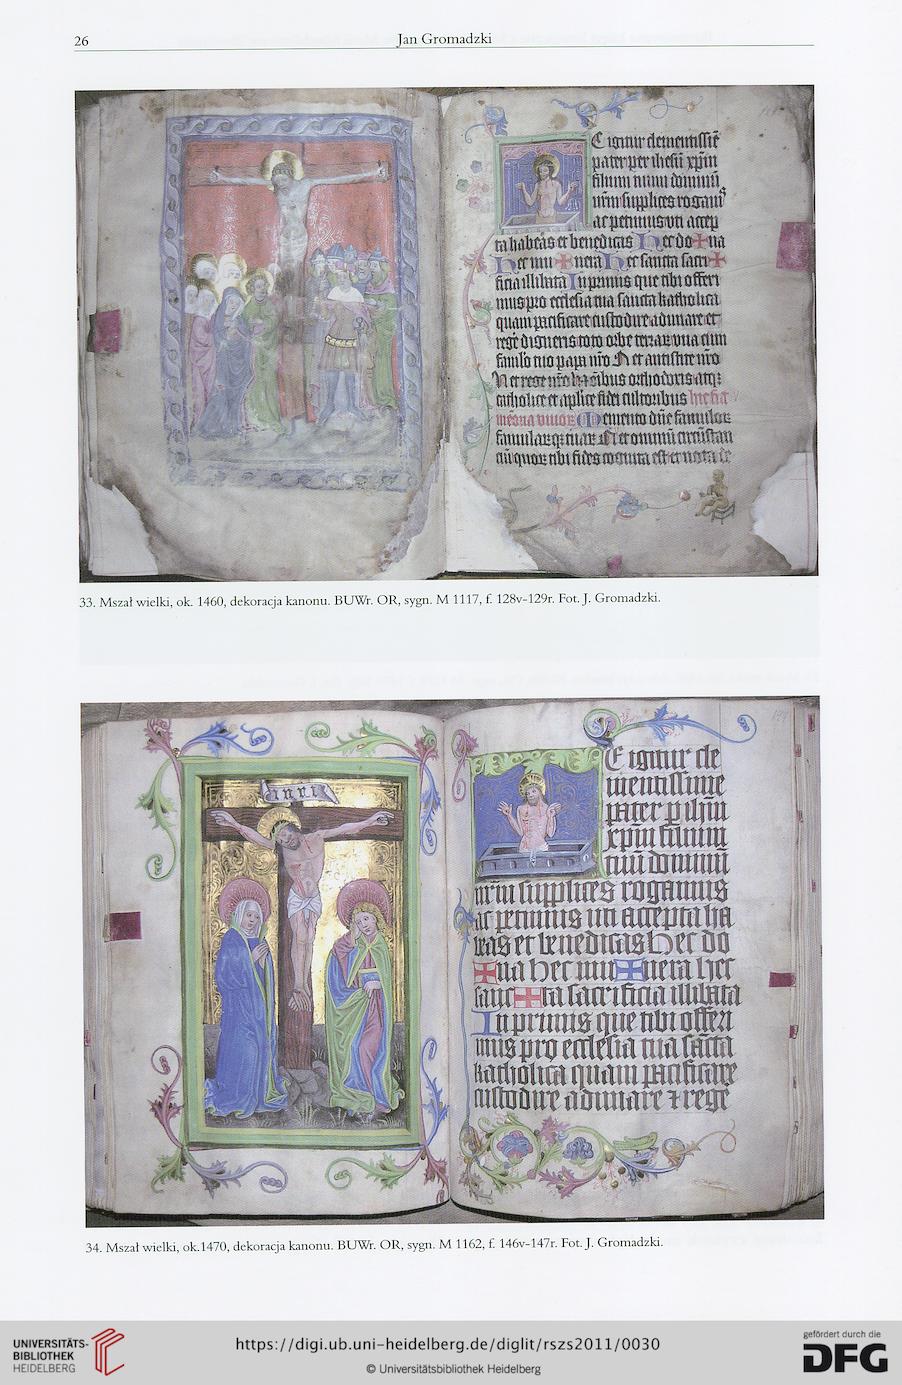 26
Jan Gromadzki
E igitur clementissīe
pater per ihesū xp̄m
filium tuum dominū
nr̄m supplices rogamꝰ
ac petimus vti accep
ta habeas et benedicas Hec do✠na
Hec mu✠nera Hec sancta sacri✠
ficia illibata In primis que tibi offeri
mus pro ecclesia tua sancta katholica
quam pacificare custodire adunare et
regē digneris toto orbe terraꝝ vna cum
famĺo tuo papa nr̄o N et antistite nr̄o
N et rege nr̄o N et oībus orthodoxis atqꝫ
catholice et aplice fidei cultoribus
Memento dn̄e famuloꝝ
famularūqꝫ tuaꝝ N et omniū circūstan
ciū quoꝝ tibi fides cognita est et nota de
33. Mszał wielki, ok. 1460, dekoracja kanonu. BUWr. OR, sygn. M 1117, f. 128v-129r. Fot. J. Gromadzki.
inri
E igitur cle
mentissime
pater p ihm̄
xpm̄ filium
tuū dominū
nr̄m supplices rogamus
ac petimus uti accepta ha
beas et benedicas Hec do
✠na Hec mu✠nera Hec
sanc✠ta sacrificia illibata
In primis que tibi offeri
mus pro ecclesia tua sācta
katholica quam pacificare
custodire adunare ⁊ rege
34. Mszał wielki, ok.1470, dekoracja kanonu. BUWr. OR, sygn. M 1162, f. 146v-147r. Fot. J. Gromadzki.
UNIVERSITÄTS-
BIBLIOTHEK
HEIDELBERG
https://digi.ub.uni-heidelberg.de/diglit/rszs2011/0030
© Universitätsbibliothek Heidelberg
gefördert durch die
DFG